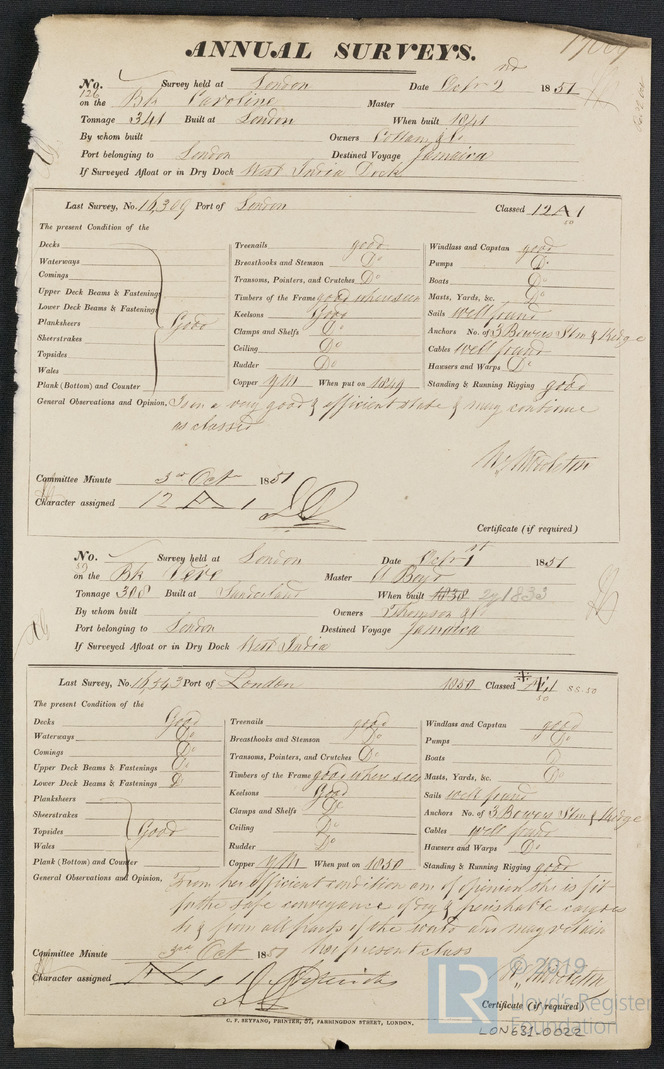 ANNUAL SURVEYS.
No. 126 Survey held at London Date Octr 2nd 1851
on the Bk Caroline Master
Tonnage 341 Built at London When built 1841
By whom built Owners
Port belonging to London Destined Voyage Jamaica
If Surveyed Afloat or in Dry Dock West India Dock
Last Survey, No. 16,309 Port of London Classed 12 A 1
50
The present Condition of the
Decks
Waterways
Comings
Upper Deck Beams & Fastenings
Lower Deck Beams & Fastenings
Planksheers Good
Sheerstrakes
Topsides
Wales
Plank (Bottom) and Counter
Treenails good
Breasthooks and Stemson Do
Transoms, Pointers, and Crutches Do
Timbers of the Frame good where seen
Keelsons Good
Clamps and Shelfs Do
Ceiling Do
Rudder Do
Copper YM When put on 1849
Windlass and Capstan good
Pumps Do
Boats Do
Masts, Yards, &c. Do
Sails well found
Anchors No. of 3 Bowers Stm & Kedge
Cables well found
Hawsers and Warps Do
Standing & Running Rigging good
General Observations and Opinion, Is in a very good & efficient state & may continue
as classed
Wm Middleton
Committee Minute 3rd Oct 1851
Character assigned 12 A 1
Certificate (if required)
No. 59 Survey held at London Date Octr 1st 1851
on the Bk Vere Master A Boyd
Tonnage 308 Built at Sunderland When built 1838 1833
By whom built Owners Thomson
Port belonging to London Destined Voyage Jamaica
If Surveyed Afloat or in Dry Dock West India
Last Survey, No. 16,343 Port of London 1850 Classed Æ 1
50
55.50
The present Condition of the
Decks Good
Waterways Do
Comings Do
Upper Deck Beams & Fastenings Do
Lower Deck Beams & Fastenings Do
Planksheers
Sheerstrakes
Topsides Good
Wales
Plank (Bottom) and Counter
Treenails good
Breasthooks and Stemson Do
Transoms, Pointers, and Crutches Do
Timbers of the Frame good where seen
Keelsons Good
Clamps and Shelfs Do
Ceiling Do
Rudder Do
Copper YM When put on 1850
Windlass and Capstan good
Pumps Do
Boats Do
Masts, Yards, &c. Do
Sails well found
Anchors No. of 3 Bowers Stm & Kedge
Cables well found
Hawsers and Warps Do
Standing & Running Rigging good
General Observations and Opinion, From her efficient condition am of opinion she is fit
for the safe conveyance of dry & perishable cargoes
to & from all parts of the world and may retain
her present class
Committee Minute 3rd Oct 1851
Character assigned Æ 1
Wm Middleton
Certificate (if required)
C. F. SEYFANG, PRINTER, 57, FARRINGDON STREET, LONDON.
LR
© 2019
Lloyd's Register
Foundation
LON631-0022